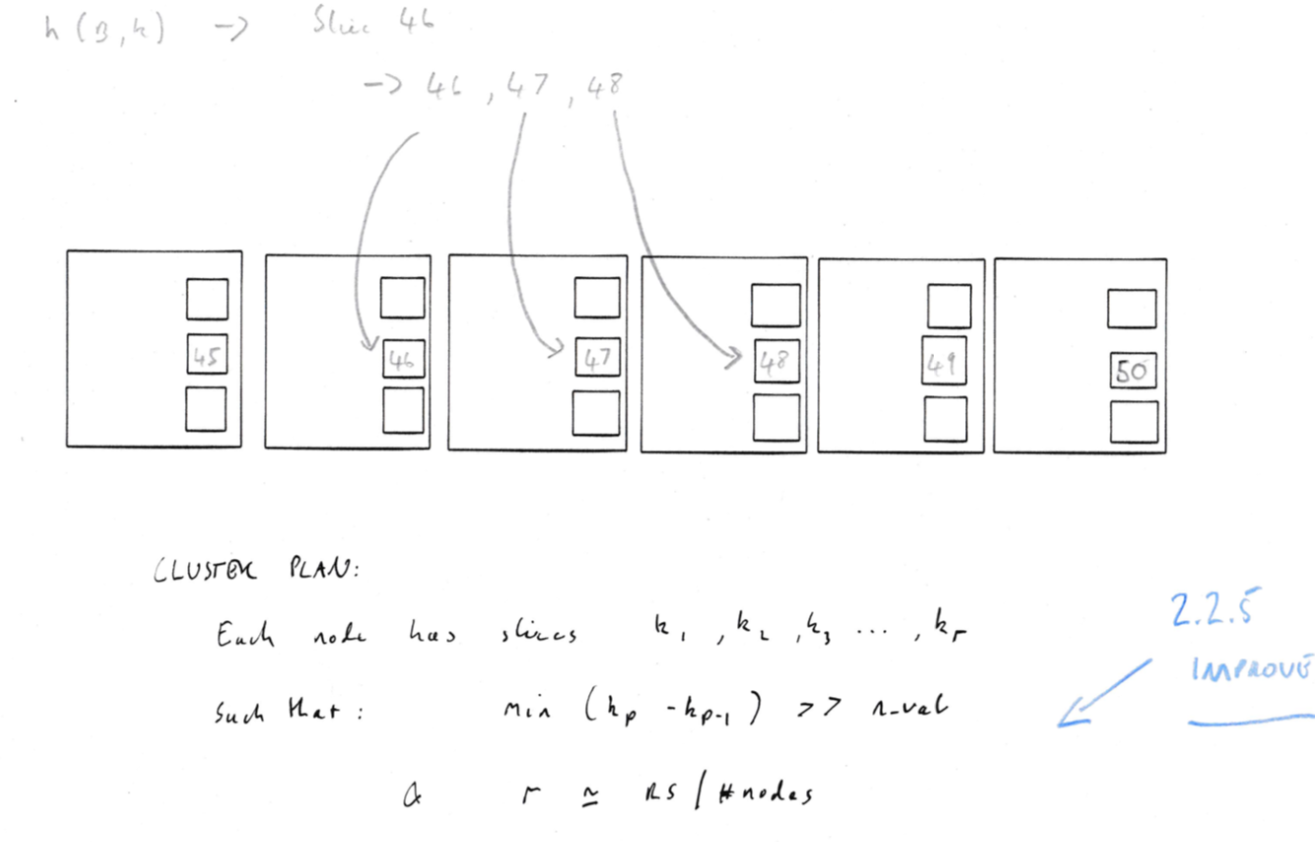 h (B,k) -> Slice 46
-> 46 , 47 , 48
45 46 47 48 49 50
CLUSTER PLAN:
Each node has slices k1 , k2 , k3 ... , kr
Such that: min (kp - kp-1) >> n-val
& r ≃ RS / #nodes
2.2.5
IMPROVE